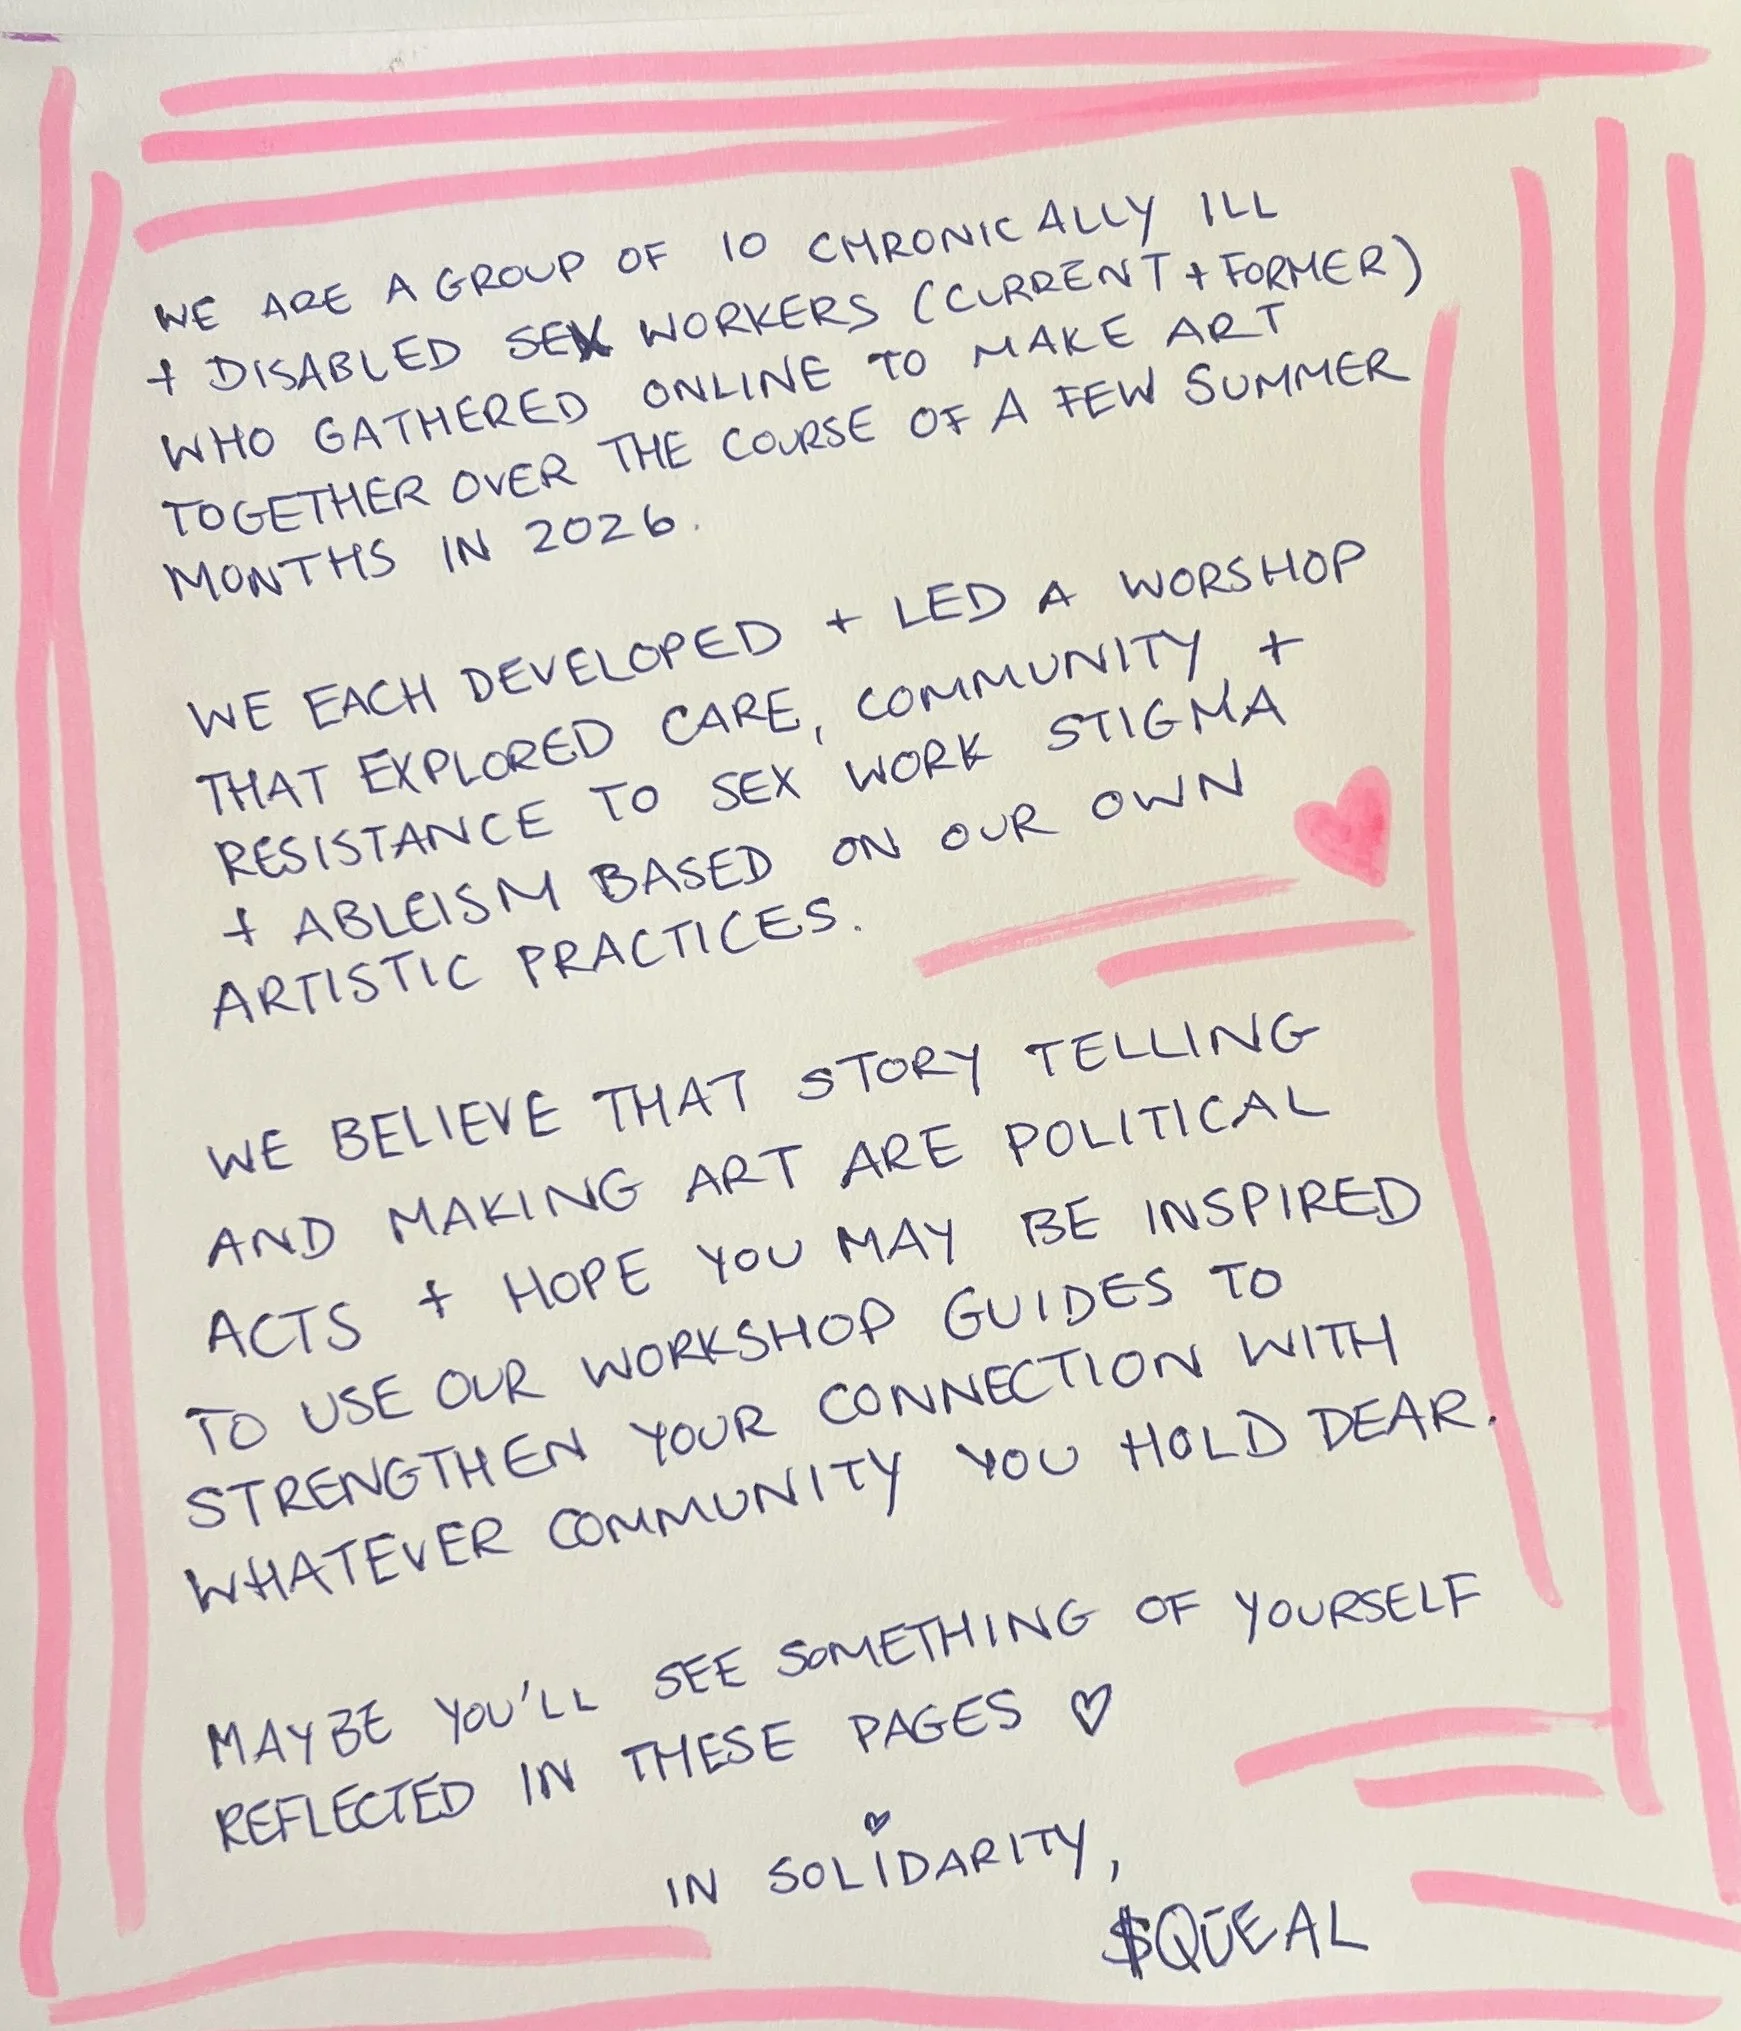 WE ARE A GROUP OF 10 CHRONICALLY ILL
+ DISABLED SEX WORKERS (CURRENT + FORMER)
WHO GATHERED ONLINE TO MAKE ART
TOGETHER OVER THE COURSE OF A FEW SUMMER
MONTHS IN 2026.
WE EACH DEVELOPED + LED A WORSHOP
THAT EXPLORED CARE, COMMUNITY +
RESISTANCE TO SEX WORK STIGMA
+ ABLEISM BASED ON OUR OWN
ARTISTIC PRACTICES.
WE BELIEVE THAT STORY TELLING
AND MAKING ART ARE POLITICAL
ACTS + HOPE YOU MAY BE INSPIRED
TO USE OUR WORKSHOP GUIDES TO
STRENGTHEN YOUR CONNECTION WITH
WHATEVER COMMUNITY YOU HOLD DEAR.
MAYBE YOU'LL SEE SOMETHING OF YOURSELF
REFLECTED IN THESE PAGES ♡
IN SOLIDARITY,
$QUEAL